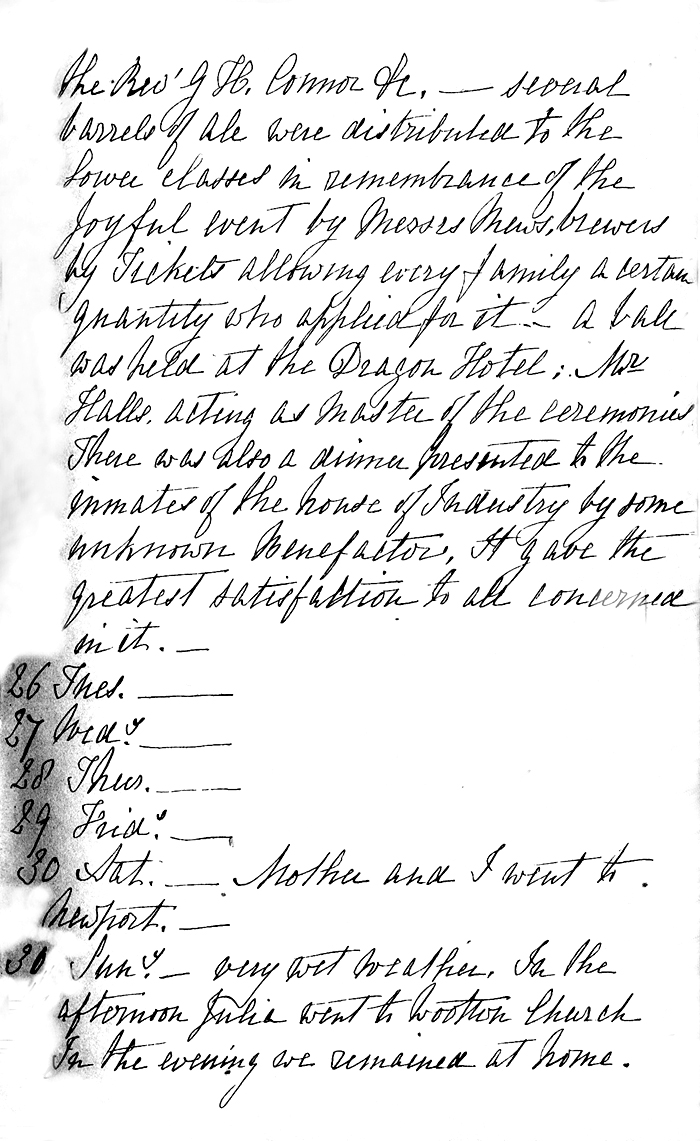 the Revᵈ G H. Connor &c. — several
barrels of ale were distributed to the
lower classes in remembrance of the
joyful event by Messrs Mews, brewers
by Tickets allowing every family a certain
quantity who applied for it. — a ball
was held at the Dragon Hotel; Mr
Halls. acting as Master of the ceremonies
There was also a dinner presented to the
inmates of the house of Industry by some
unknown Benefactor, It gave the
greatest satisfaction to all concerned
in it. —
26 Tues. —
27 Wedʸ. —
28 Thur. —
29 Fridʸ. —
30 Sat. — Mother and I went to
Newport. —
30 Sunʸ. — very wet weather. In the
afternoon Julia went to Wootton Church
In the evening we remained at home.